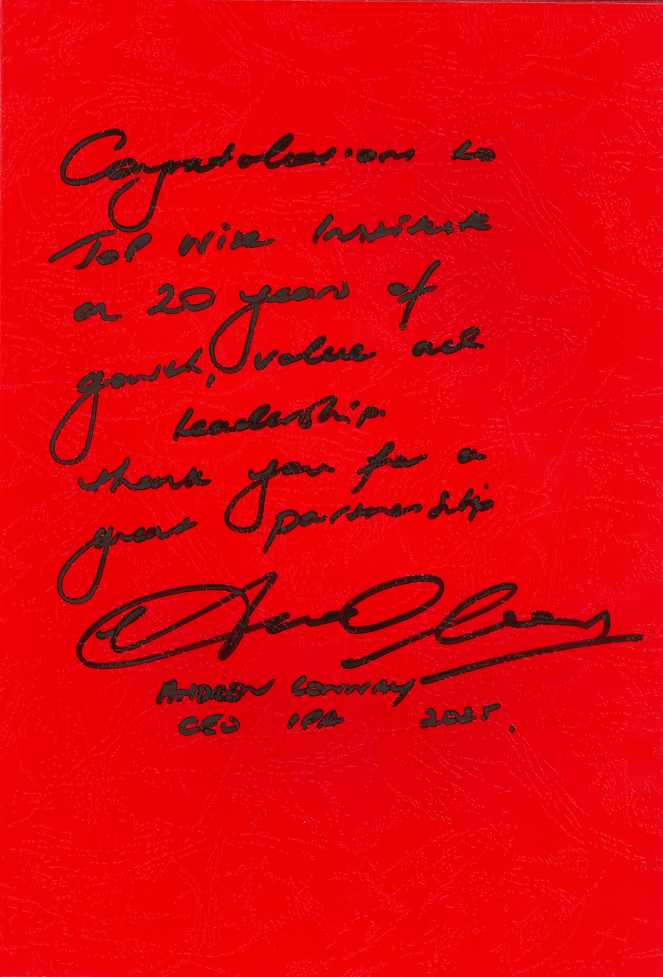 Congratulations to
Top Wise Institute
on 20 years of
growth, value and
leadership.
thank you for a
great partnership
ANDREW CONWAY
CEO IPA 2025.